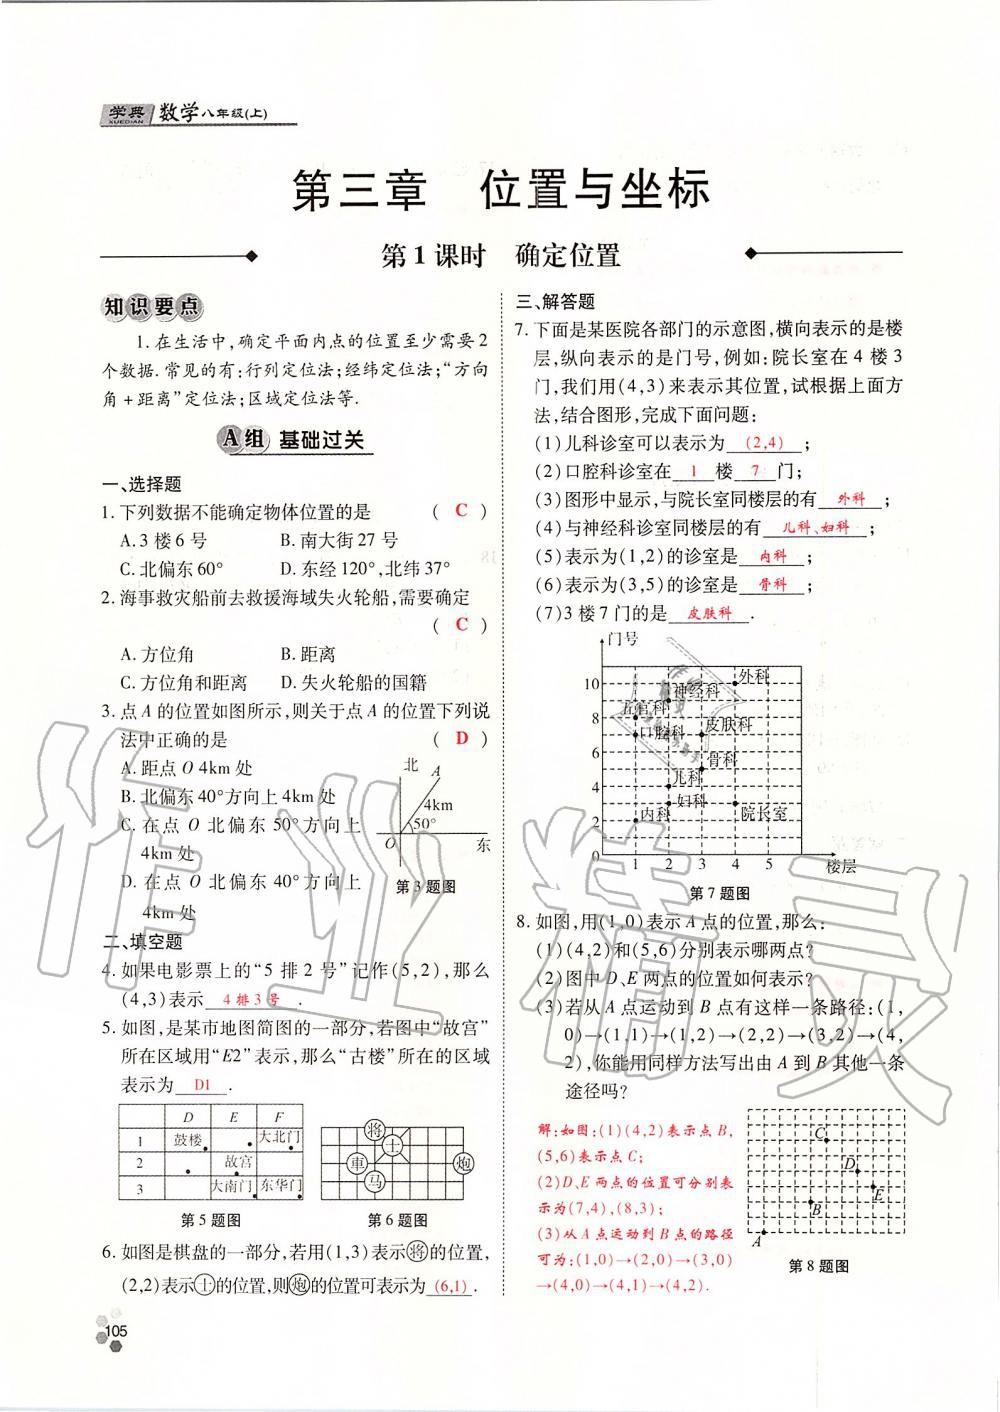 学典 数学八年级(上)
XUEDIAN
第三章 位置与坐标
第1课时 确定位置
知识要点
1.在生活中,确定平面内点的位置至少需要2
个数据.常见的有:行列定位法;经纬定位法;“方向
角+距离”定位法;区域定位法等.
A组 基础过关
一、选择题
1.下列数据不能确定物体位置的是 ( C )
A.3楼6号 B.南大街27号
C.北偏东60° D.东经120°,北纬37°
2.海事救灾船前去救援海域失火轮船,需要确定
( C )
A.方位角 B.距离
C.方位角和距离 D.失火轮船的国籍
3.点A的位置如图所示,则关于点A的位置下列说
法中正确的是 ( D )
A.距点O 4km处
B.北偏东40°方向上4km处
C.在点O北偏东50°方向上
4km处
D.在点O北偏东40°方向上
4km处
北 A
4km
50°
O 东
第3题图
二、填空题
4.如果电影票上的“5排2号”记作(5,2),那么
(4,3)表示 4排3号 .
5.如图,是某市地图简图的一部分,若图中“故宫”
所在区域用“E2”表示,那么“古楼”所在的区域
表示为 D1 .
D E F
1 鼓楼 大北门
2 故宫
3 大南门 东华门
第5题图
将
士
車 炮
马
第6题图
6.如图是棋盘的一部分,若用(1,3)表示将的位置,
(2,2)表示士的位置,则炮的位置可表示为 (6,1) .
105
三、解答题
7.下面是某医院各部门的示意图,横向表示的是楼
层,纵向表示的是门号,例如:院长室在4楼3
门,我们用(4,3)来表示其位置,试根据上面方
法,结合图形,完成下面问题:
(1)儿科诊室可以表示为 (2,4) ;
(2)口腔科诊室在 1 楼 7 门;
(3)图形中显示,与院长室同楼层的有 外科 ;
(4)与神经科诊室同楼层的有 儿科、妇科 ;
(5)表示为(1,2)的诊室是 内科 ;
(6)表示为(3,5)的诊室是 骨科 ;
(7)3楼7门的是 皮肤科 .
门号
10 外科
神经科
8 五官科
口腔科 皮肤科
6
骨科
4 儿科
妇科
2 内科 院长室
0 1 2 3 4 5 楼层
第7题图
8.如图,用(1,0)表示A点的位置,那么:
(1)(4,2)和(5,6)分别表示哪两点?
(2)图中D、E两点的位置如何表示?
(3)若从A点运动到B点有这样一条路径:(1,
0)→(1,1)→(1,2)→(2,2)→(3,2)→(4,
2),你能用同样方法写出由A到B其他一条
途径吗?
解:如图:(1)(4,2)表示点B,
(5,6)表示点C;
(2)D、E两点的位置可分别表
示为(7,4),(8,3);
(3)从A点运动到B点的路径
可为:(1,0)→(2,0)→(3,0)
→(4,0)→(4,1)→(4,2).
C
D
E
B
A
第8题图
作业精灵